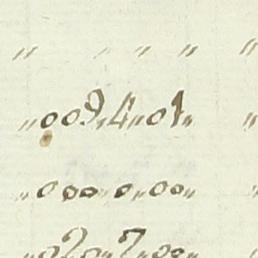 " " " " "
"009"4"01" "
"000"0"00" "
"020"7"00"